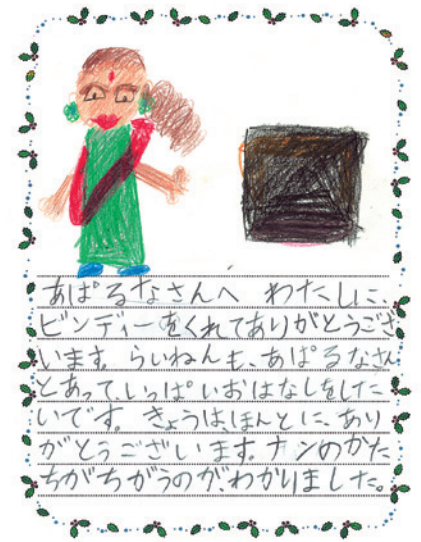 あぱるなさんへ わたしに、
ビンディーをくれてありがとうござ
います。らいねんも、あぱるなさん
とあって、いっぱいおはなしをした
いです。きょうは、ほんとに、あり
がとうございます。ナンのかた
ちがちがうのが、わかりました。